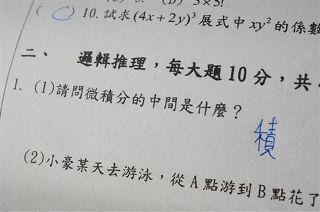 ( ) 10. 試求 (4x + 2y)³ 展式中 xy² 的係數
二、 邏輯推理，每大題 10 分，共
1. (1)請問微積分的中間是什麼？
積
(2)小豪某天去游泳，從 A 點游到 B 點花了